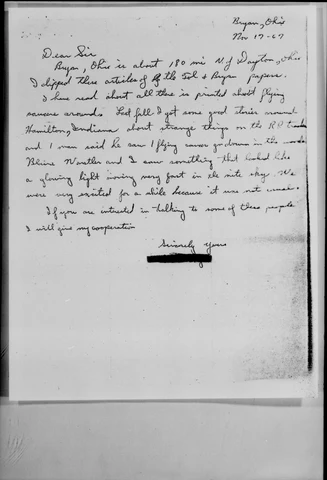 Bryan, Ohio
Nov 17-67
Dear Sir
Bryan, Ohio is about 180 mi N of Dayton, Ohio
I clipped these articles of the Tol & Bryan papers.
I have read about all there is printed about flying
saucers around. Last fall I got some good stories around
Hamilton, Indiana about strange things on the RR tracks
and 1 man said he saw 1 flying saucer go down in the woods
and I saw something that looked like
a glowing light moving very fast in the nite sky. We
were very excited for a while because it was not
If you are intrested in talking to some of these people
I will give my cooperation
Sincerely yours